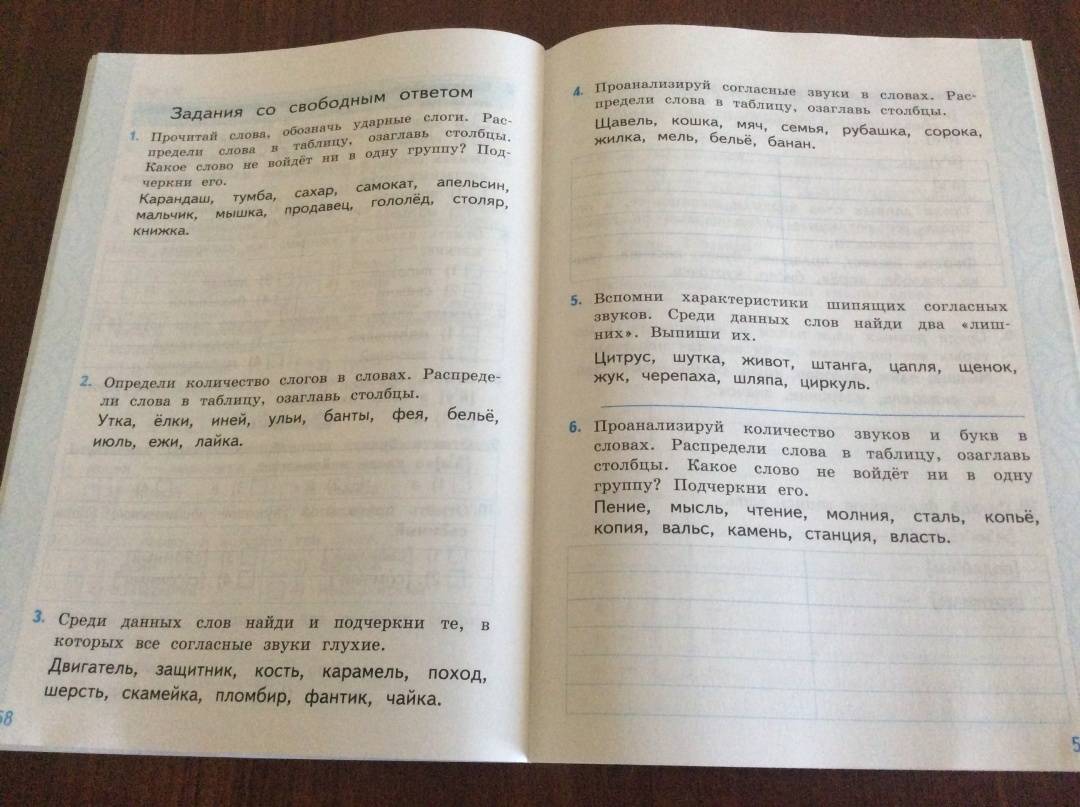 Задания со свободным ответом
1. Прочитай слова, обозначь ударные слоги. Рас-
предели слова в таблицу, озаглавь столбцы.
Какое слово не войдёт ни в одну группу? Под-
черкни его.
Карандаш, тумба, сахар, самокат, апельсин,
мальчик, мышка, продавец, гололёд, столяр,
книжка.
2. Определи количество слогов в словах. Распреде-
ли слова в таблицу, озаглавь столбцы.
Утка, ёлки, иней, ульи, банты, фея, бельё,
июль, ежи, лайка.
3. Среди данных слов найди и подчеркни те, в
которых все согласные звуки глухие.
Двигатель, защитник, кость, карамель, поход,
шерсть, скамейка, пломбир, фантик, чайка.
58
4. Проанализируй согласные звуки в словах. Рас-
предели слова в таблицу, озаглавь столбцы.
Щавель, кошка, мяч, семья, рубашка, сорока,
жилка, мель, бельё, банан.
5. Вспомни характеристики шипящих согласных
звуков. Среди данных слов найди два «лиш-
них». Выпиши их.
Цитрус, шутка, живот, штанга, цапля, щенок,
жук, черепаха, шляпа, циркуль.
6. Проанализируй количество звуков и букв в
словах. Распредели слова в таблицу, озаглавь
столбцы. Какое слово не войдёт ни в одну
группу? Подчеркни его.
Пение, мысль, чтение, молния, сталь, копьё,
копия, вальс, камень, станция, власть.
5